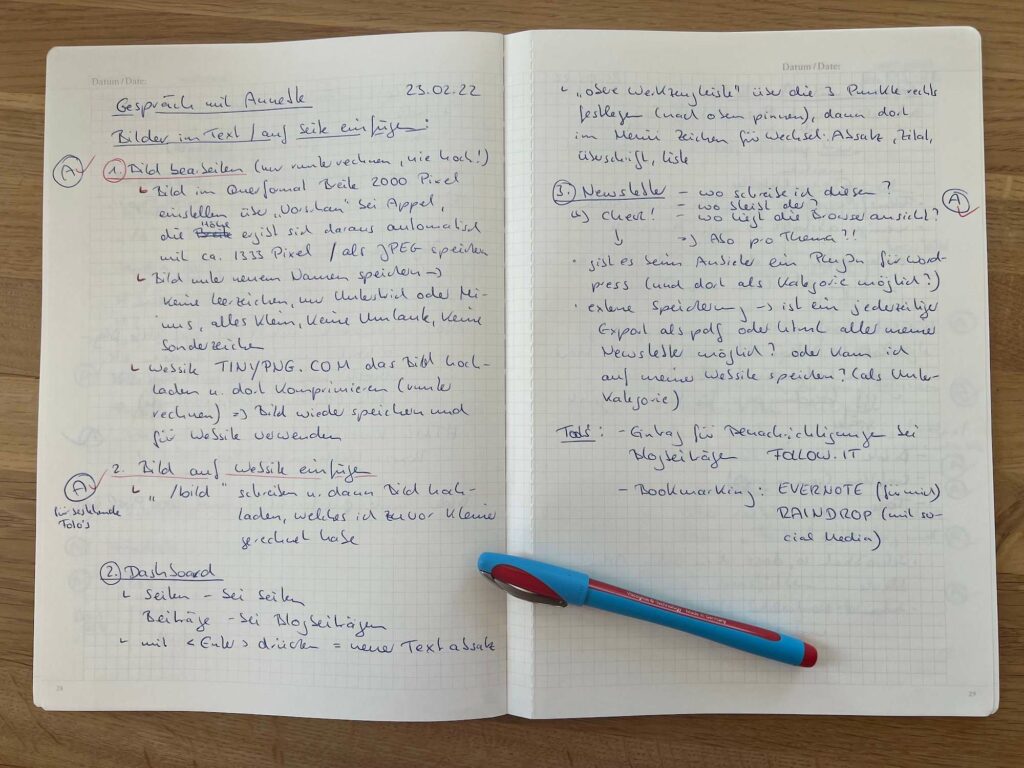 Datum / Date:
Gespräch mit Annette 23.02.22
Bilder im Text / auf Seite einfügen:
A 1. Bild bearbeiten (nur runterrechnen, nie hoch!)
Bild im Querformat Breite 2000 Pixel
einstellen über „Vorschau" bei Appel,
Höhe
die Breite ergibt sich daraus automatisch
mit ca. 1333 Pixel / als JPEG speichern
Bild unter neuem Namen speichern →
keine Leerzeichen, nur Unterstrich oder Mi-
nus, alles klein, keine Umlaute, keine
Sonderzeichen
Website TINYPNG.COM das Bild hoch-
laden u. dort komprimieren (runter
rechnen) => Bild wieder speichern und
für Website verwenden
A 2. Bild auf Website einfügen
für bestehende
Foto's
„/bild" schreiben u. dann Bild hoch-
laden, welches ich zuvor kleiner
gerechnet habe
2. Dashboard
Seiten - bei Seiten
Beiträge - bei Blogbeiträgen
mit <Enter> drücken = neuer Textabsatz
28
Datum / Date:
„obere Werkzeugleiste" über die 3 Punkte rechts
festlegen (nach oben pinnen), dann dort
im Menü Zeichen für Wechsel: Absatz, Zitat,
Überschrift, Liste
3. Newsletter - wo schreibe ich diesen?
- wo bleibt der?
a) Check! - wo liegt die Browseransicht? A
↓ => Abo pro Thema?!
· gibt es beim Anbieter ein PlugIn für Word-
press (und dort als Kategorie möglich?)
· externe Speicherung → ist ein jederzeitiger
Export als pdf oder html aller meiner
Newsletter möglich? oder kann ich
auf meiner Website speichern? (als Unter-
kategorie)
Tools: - Eintrag für Benachrichtigungen bei
Blogbeiträgen FOLLOW.IT
- Bookmarking: EVERNOTE (für mich)
RAINDROP (mit so-
cial Media)
29